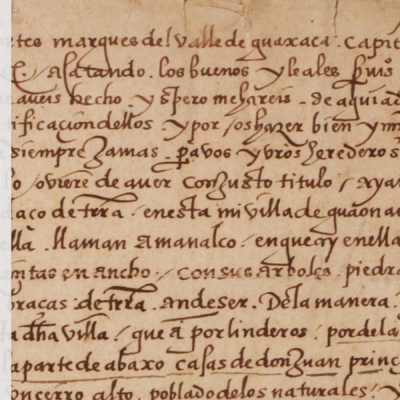 rtes marques del valle de guaxaca. capit
acatando. los buenos y leales seruiº
aueis hecho. y spero me hareis. de aqui ad
ificacion dellos. y por os hazer bien y m
siempre Jamas. para vos y vros herederos
o oviere de auer con Justo titulo / aya
daço de trra. en esta mi villa de guaona
ella. llaman amanalco / en que ay en ella
entas en ancho / con sus arboles. piedra
braças de trra. an de ser. De la manera.
a dha villa / que a por linderos / por de la
la parte de abaxo casas de don Juan princ
un cerro alto. poblado de los naturales / y